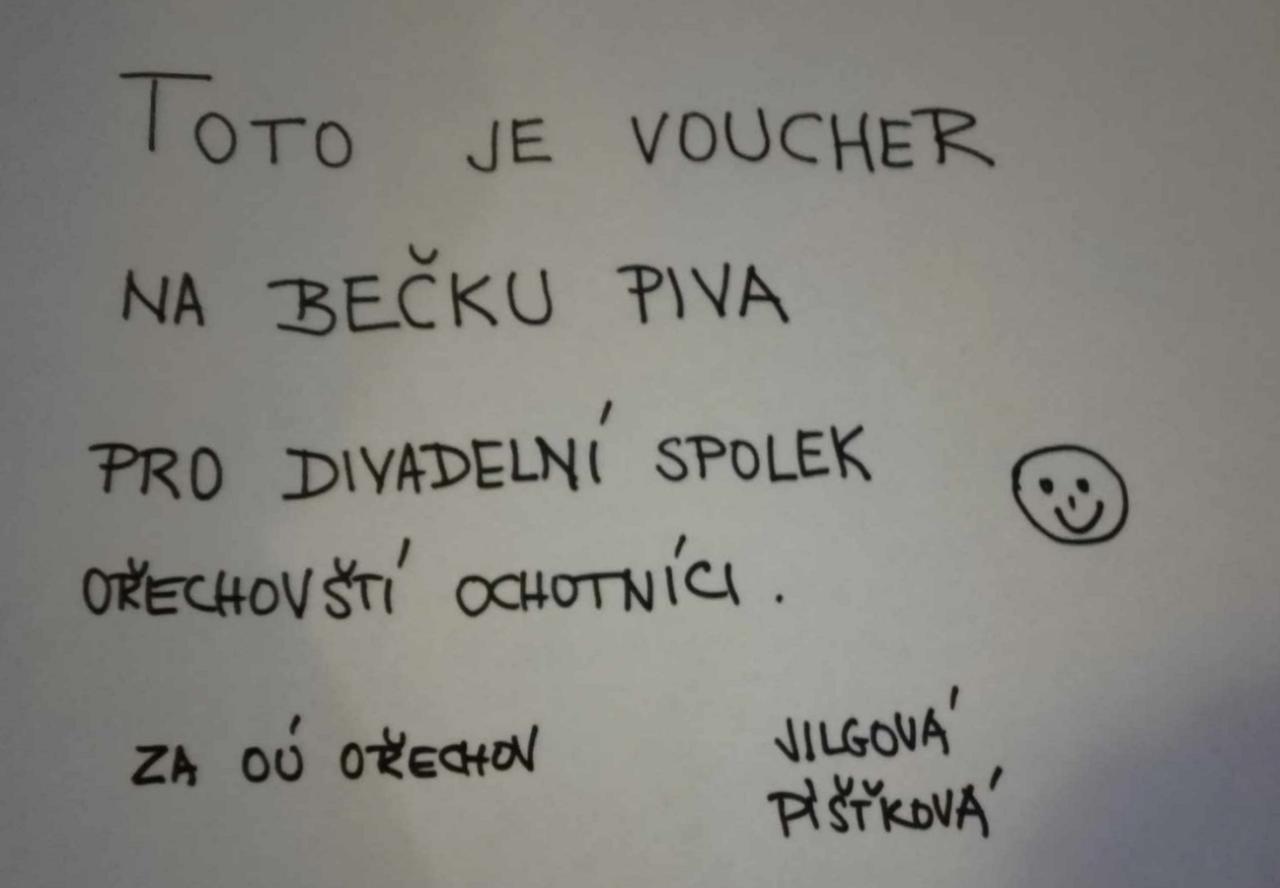 TOTO JE VOUCHER
NA BEČKU PIVA
PRO DIVADELNÍ SPOLEK
OŘECHOVŠTÍ OCHOTNÍCI.
ZA OÚ OŘECHOV
JILGOVÁ
PIŠŤKOVÁ